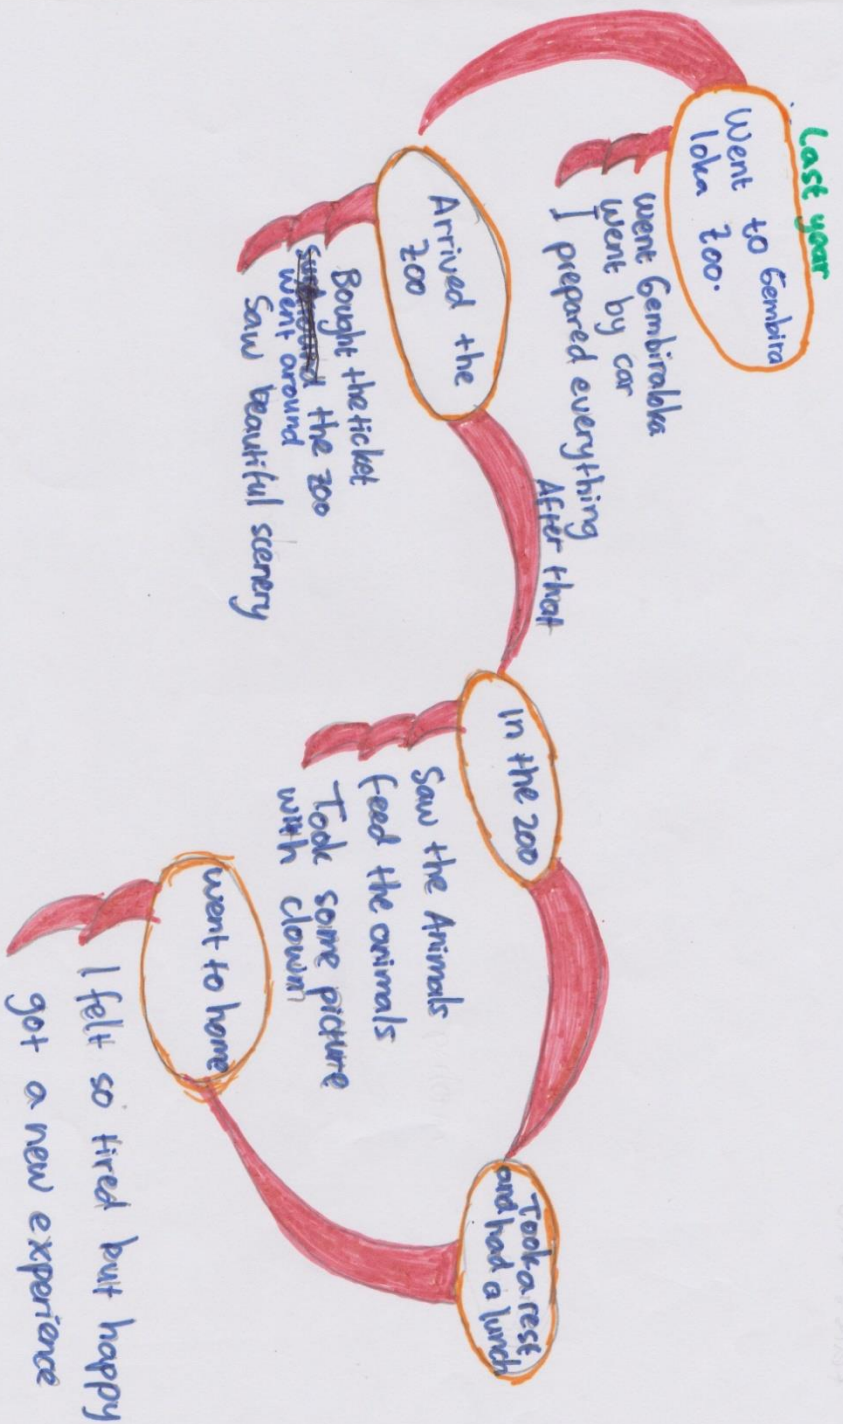 Last year
Went to Gembira
loka Zoo.
Went Gembiraloka
Went by car
I prepared everything
Arrived the
Zoo
Bought the ticket
went around the zoo
Saw beautiful scenery
After that
In the zoo
Saw the Animals
feed the animals
Took some picture
with clown
Took a rest
and had a lunch
went to home
I felt so tired but happy
got a new experience